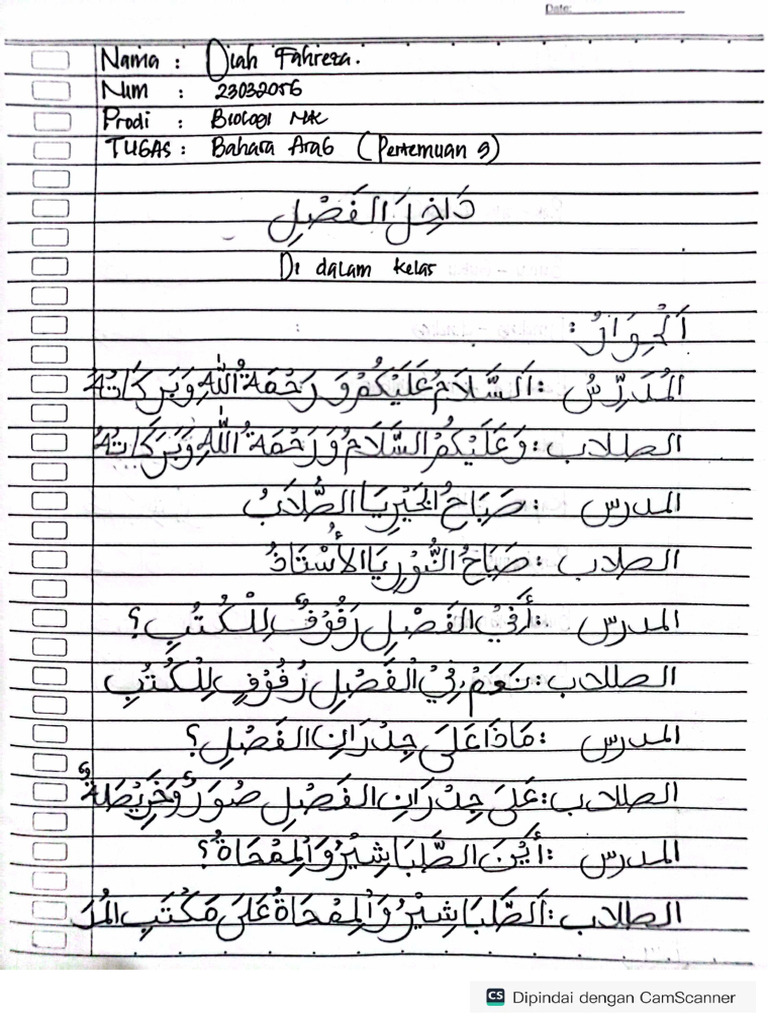 Date:
Nama : Diah Fahreza.
Nim : 23032056
Prodi : Biologi NK
TUGAS : Bahasa Arab (Pertemuan 9)
دَاخِلَ الفَصْلِ
Di dalam kelas
اَلْحِوَارُ :
المُدَرِّسُ : اَلسَّلَامُ عَلَيْكُمْ وَرَحْمَةُ اللّٰهِ وَبَرَكَاتُهُ
الطلاب : وَعَلَيْكُمُ السَّلَامُ وَرَحْمَةُ اللّٰهِ وَبَرَكَاتُهُ
المدرس : صَبَاحُ الخَيْرِ يَا الطُّلَابُ
الطلاب : صَبَاحُ النُّوْرِ يَا الأُسْتَاذُ
المدرس : أَفِيْ الفَصْلِ رُفُوْفٌ لِلْكُتُبِ ؟
الطلاب : نَعَمْ، فِيْ الْفَصْلِ رُفُوْفٍ لِلْكُتُبِ
المدرس : مَاذَا عَلَى جِدْرَانِ الفَصْلِ ؟
الطلاب : عَلَى جِدْرَانِ الفَصْلِ صُوَرٌ وَخَرِيْطَةٌ
المدرس : أَيْنَ الطَّبَاشِيْرُ وَالْمِمْحَاةُ ؟
الطلاب : اَلطَّبَاشِيْرُ وَالْمِمْحَاةُ عَلَى مَكْتَبِ المُدَ
CS Dipindai dengan CamScanner